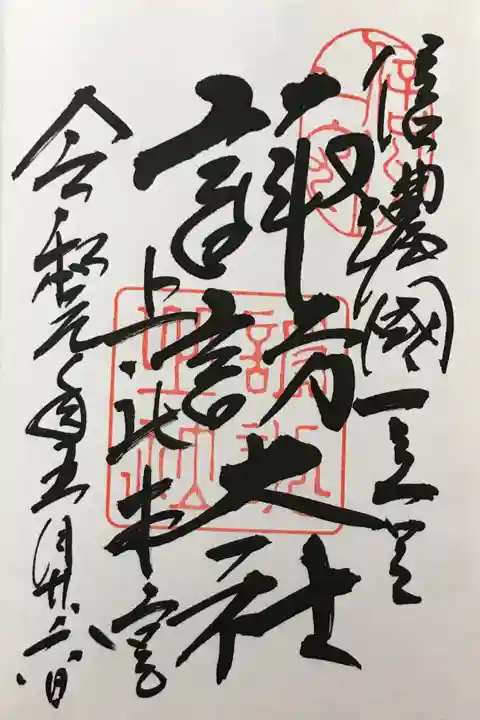 信濃國一之宮
諏訪大社
上社本宮
令和元年五月廿六日